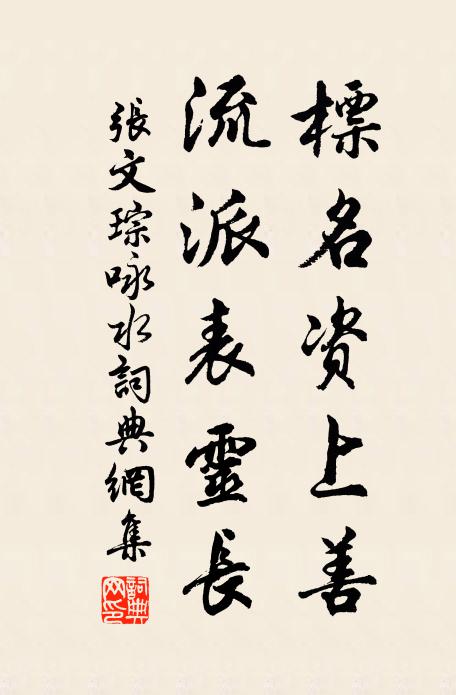 標名資上善
流派表靈長
張文琮咏水詞典網集
詞典网印